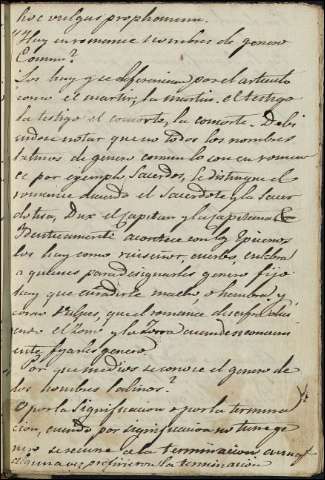 hoc vulgus prophanum.
Hay en romance nombres de genero
Comun?
Los hay q.e se diferencian por el articulo
como el martir, la martir. el testigo
la testigo el consorte, la consorte. Debi
endose notar que no todos los nombres
latinos de genero comun lo son en roman
ce por exemplo Sacerdos, se distingue el
romance diciendo el Sacerdote y la Sacer
dotisa, Dux el Capitan y la Capitana &
acontece con los Epicenos
los hay como ruiseñor, cuerbo, culebra
a quienes para designarles genero fijo
hay que añadirle macho o hembra, y
como Vulpes, que el romance
endo el Zorro y la Zorra
genero.
Por que medios se conoce el genero de
los nombres latinos?
O por la significacion o por la termina
cion, cuando por significacion no tiene ge
nero se recurre a la terminacion, aunq.e
alguna vez prefirieron la terminacion